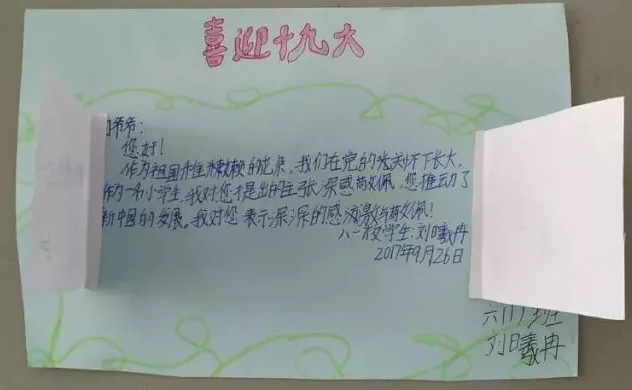 喜迎十九大
爷爷：
您好！
作为祖国稚嫩的花朵，我们在党的关怀下长大，
作为一名小学生，我对您提出的主张深感敬佩，您推动了
新中国的发展。我对您表示深深的感激与敬佩！
八一校学生：刘曦冉
2017年9月26日
六(1)班
刘曦冉